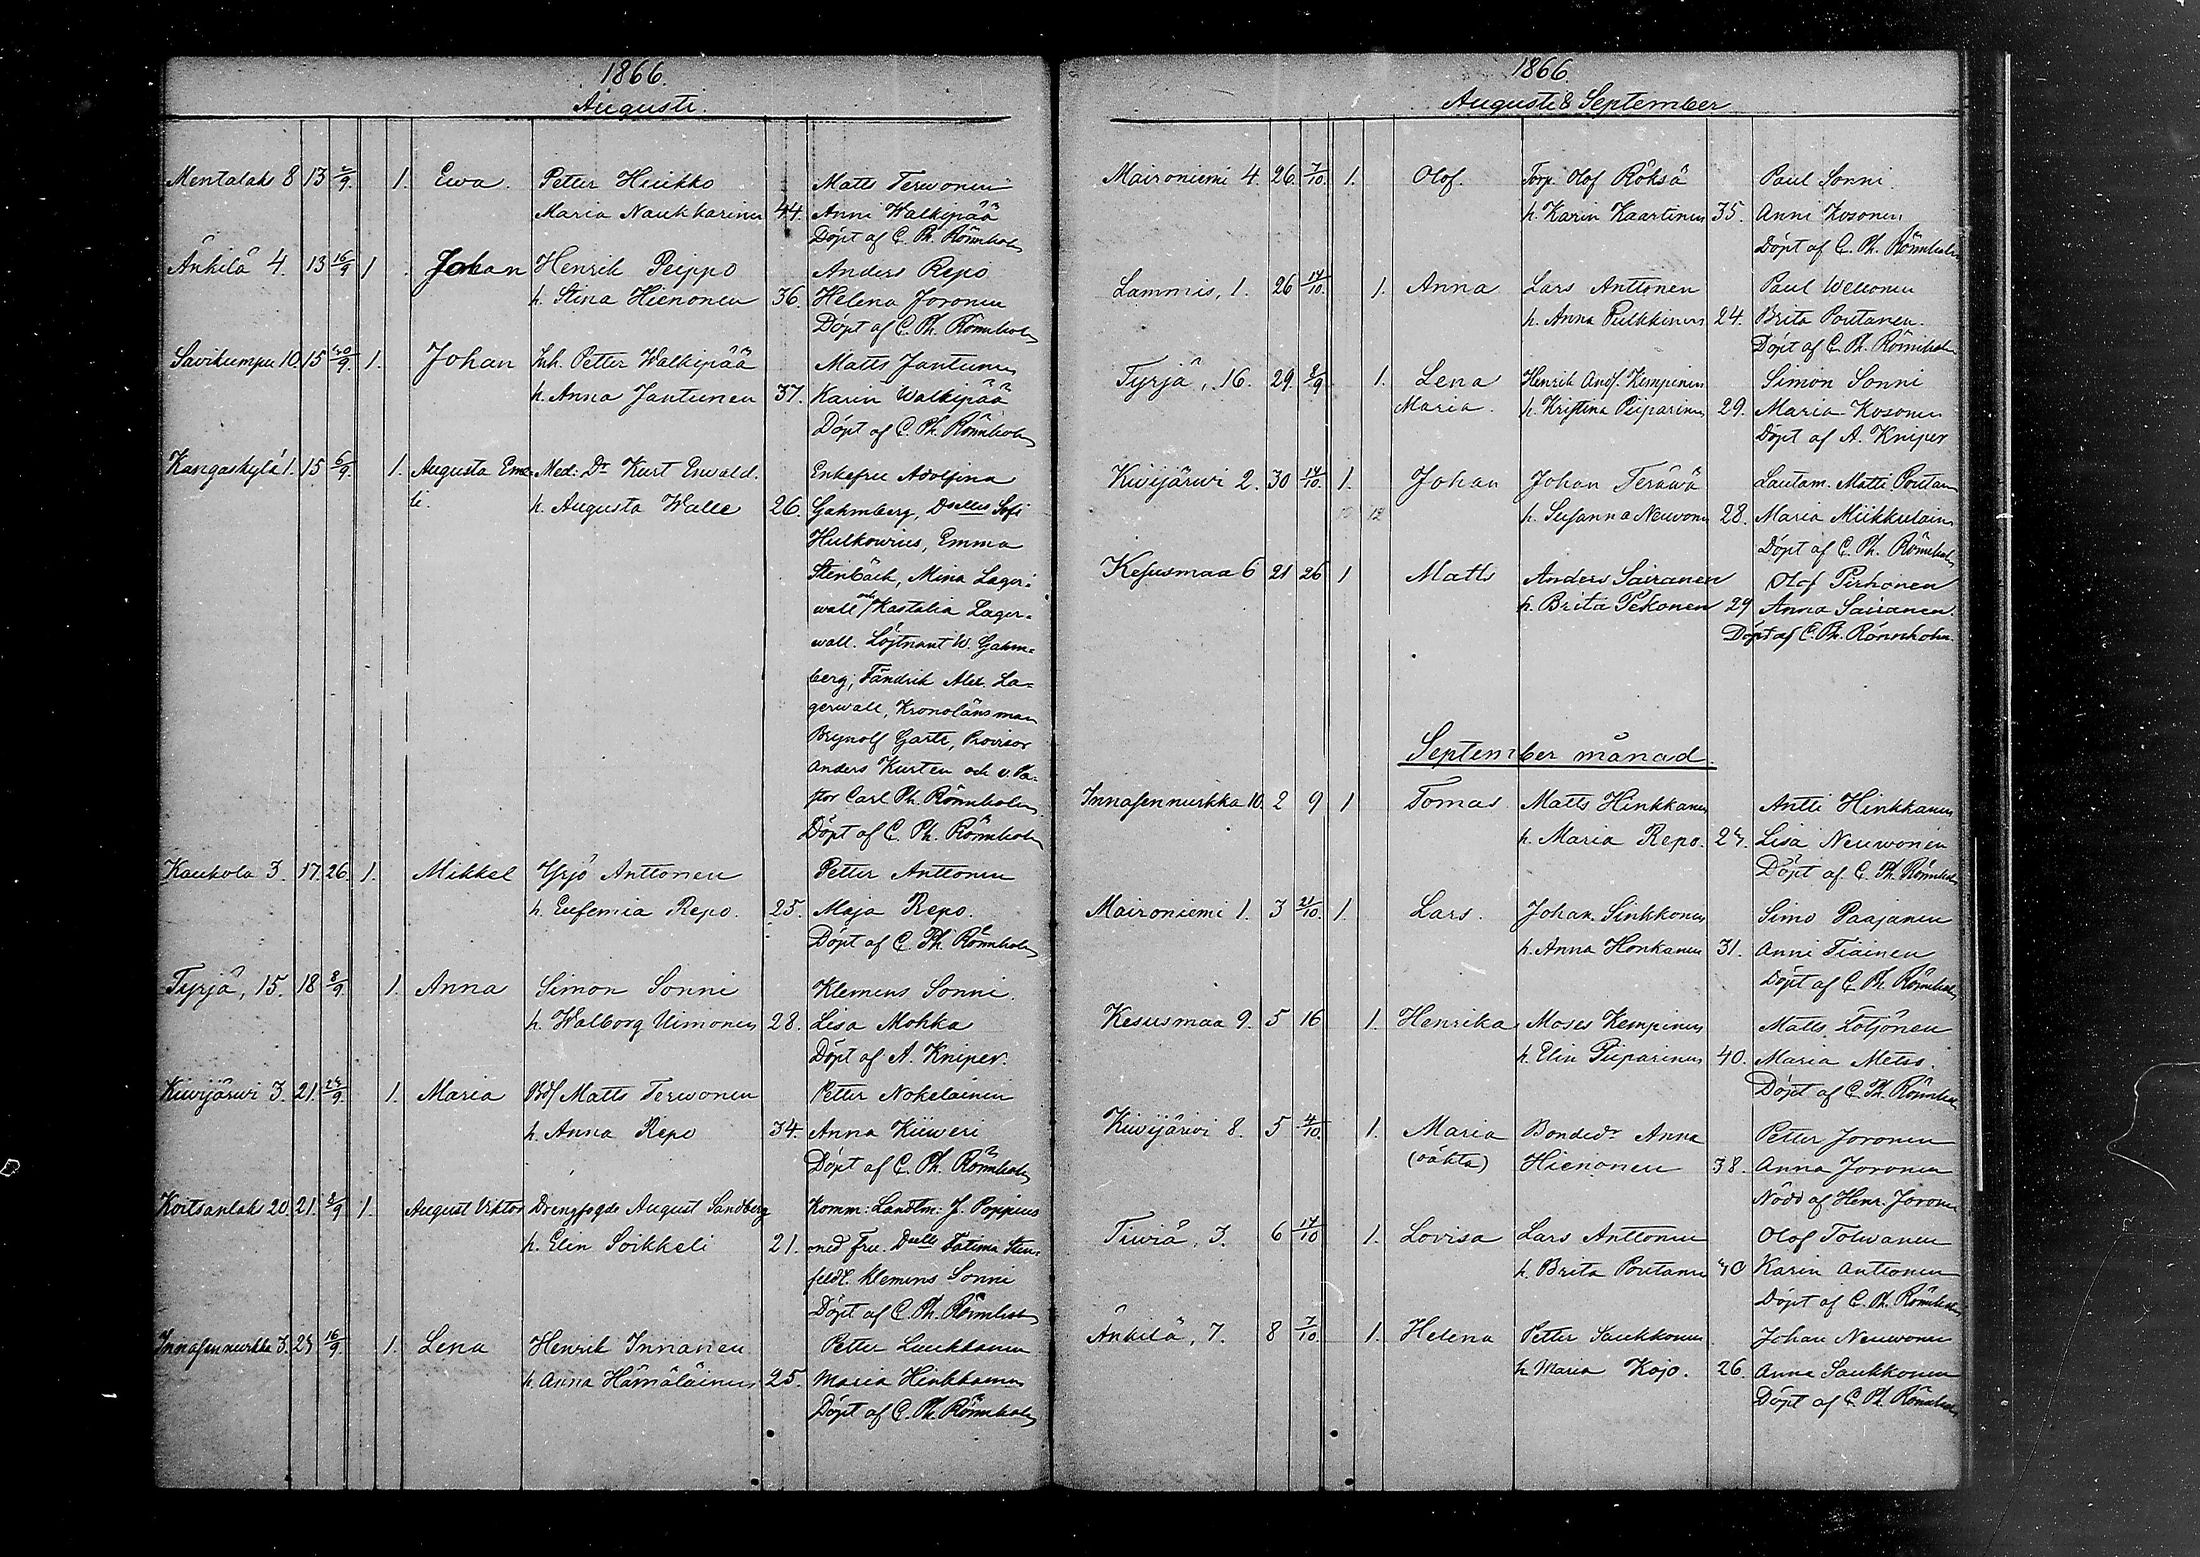 1866.
Augusti.
Mentalaks 8 13 2/9. 1. Ewa. Petter Hiukko Matts Terwonen
Maria Naukkarinen 44. Anni Walkipää
Döpt af C. Ph. Rönnholm
Änkilä 4. 13 16/9 1 Johan Henrik Peippo Anders Repo
h. Stina Hienonen 36. Helena Joronen
Döpt af C. Ph. Rönnholm
Savikumpu 10. 15 /9. 1. Johan Inh. Petter Walkipää Matts Jantunen
h. Anna Jantunen 37. Karin Walkipää
Döpt af C. Ph. Rönnholm
Kangaskylä 1. 15 6/9. 1. Augusta Eme- Med: Dr Kurt Enwald. Enkefru Adolfina
li. h. Augusta Walle 26. Gahmberg, Dselles Sofi
Hulkowius, Emma
Stenbäck, Mina Lager-
wall och Nastalia Lager-
wall. Löjtnant W. Gahm-
berg, Fändrik Alex. La-
gerwall, Kronolänsman
Brynolf Garte, Provisor
Anders Kurten och v. Pa-
stor Carl Ph. Rönnholm
Döpt af C. Ph. Rönnholm
Kaukola 3. 17. 26. 1. Mikkel Yrjö Anttonen Petter Anttonen
h. Eufemia Repo. 25. Maja Repo.
Döpt af C. Ph. Rönnholm
Tyrjä, 15. 18 8/9. 1. Anna Simon Sonni Klemens Sonni.
h. Walborg Uimonen 28. Lisa Mohka
Döpt af A. Kniper.
Kiwijärwi 3. 21. 23/9. 1. Maria Bds Matts Terwonen Petter Nokelainen
h. Anna Repo 34. Anna Kiiweri
Döpt af C. Ph. Rönnholm
Koitsanlaks 20. 21. 2/9 1. August Viktor Drengfogde August Sandberg Komm: Landtm: J. Poppius
h. Elin Soikkeli 21. med Fru. Dselle Fatima Sten-
feldt. Klemens Sonni
Döpt af C. Ph. Rönnholm
Innasennurkka 3. 23 16/9. 1. Lena Henrik Innanen Petter Luukkonen
h. Anna Hämäläinen 25. Maria Hinkkanen
Döpt af C. Ph. Rönnholm
1866.
Augusti & September
Maironiemi 4. 26. 7/10. 1. Olof. Torp. Olof Röksä Paul Sonni.
h. Karin Kaartinen 35. Anni Kosonen
Döpt af C. Ph. Rönnholm
Lammis, 1. 26 14/10. 1. Anna Lars Anttonen Paul Wellonen
h. Anna Pulkkinen 24. Brita Poutanen.
Döpt af C. Ph. Rönnholm
Tyrjä, 16. 29. 8/9 1. Lena Henrik Ands. Kempinen Simon Sonni
Maria. h. Kristina Piiparinen 29. Maria Kosonen
Döpt af A. Kniper
Kiwijärwi 2. 30 14/10. 1. Johan Johan Teräwä Lautam. Matti Poutan
10 12 h. Susanna Neuvonen 28. Maria Miikkulain
Döpt af C. Ph. Rönnholm
Kesusmaa 6 21 26 1 Matts Anders Sairanen Olof Pirhonen
h. Brita Pekonen 29 Anna Sairanen.
Döpt af C. Ph. Rönnholm
September månad.
Innasennurkka 10. 2 9 1 Tomas Matts Hinkkanen Antti Hinkkanen
h. Maria Repo. 23. Lisa Neuwonen
Döpt af C. Ph. Rönnholm
Maironiemi 1. 3 21/10. 1. Lars. Johan Sinkkonen Simo Paajanen
h. Anna Honkanen 31. Anni Tiainen
Döpt af C. Ph. Rönnholm
Kesusmaa 9. 5 16 1. Henrika Moses Kempinen Matts Lötjönen
h. Elin Piiparinen 40. Maria Mets.
Döpt af C. Ph. Rönnholm
Kiwijärwi 8. 5 4/10. 1. Maria Bonded:r Anna Petter Joronen
(oäkta) Hienonen 38. Anna Joronen
Nöddöpt af Henr. Joronen
Tiuviä, 3. 6 14/10 1. Lovisa Lars Anttonen Olof Tolwanen
h. Brita Poutanen 40 Karin Anttonen
Döpt af C. Ph. Rönnholm
Änkilä, 7. 8 7/10. 1. Helena Petter Saukkonen Johan Neuwonen
h. Maria Kojo. 26. Anna Saukkonen
Döpt af C. Ph. Rönnholm